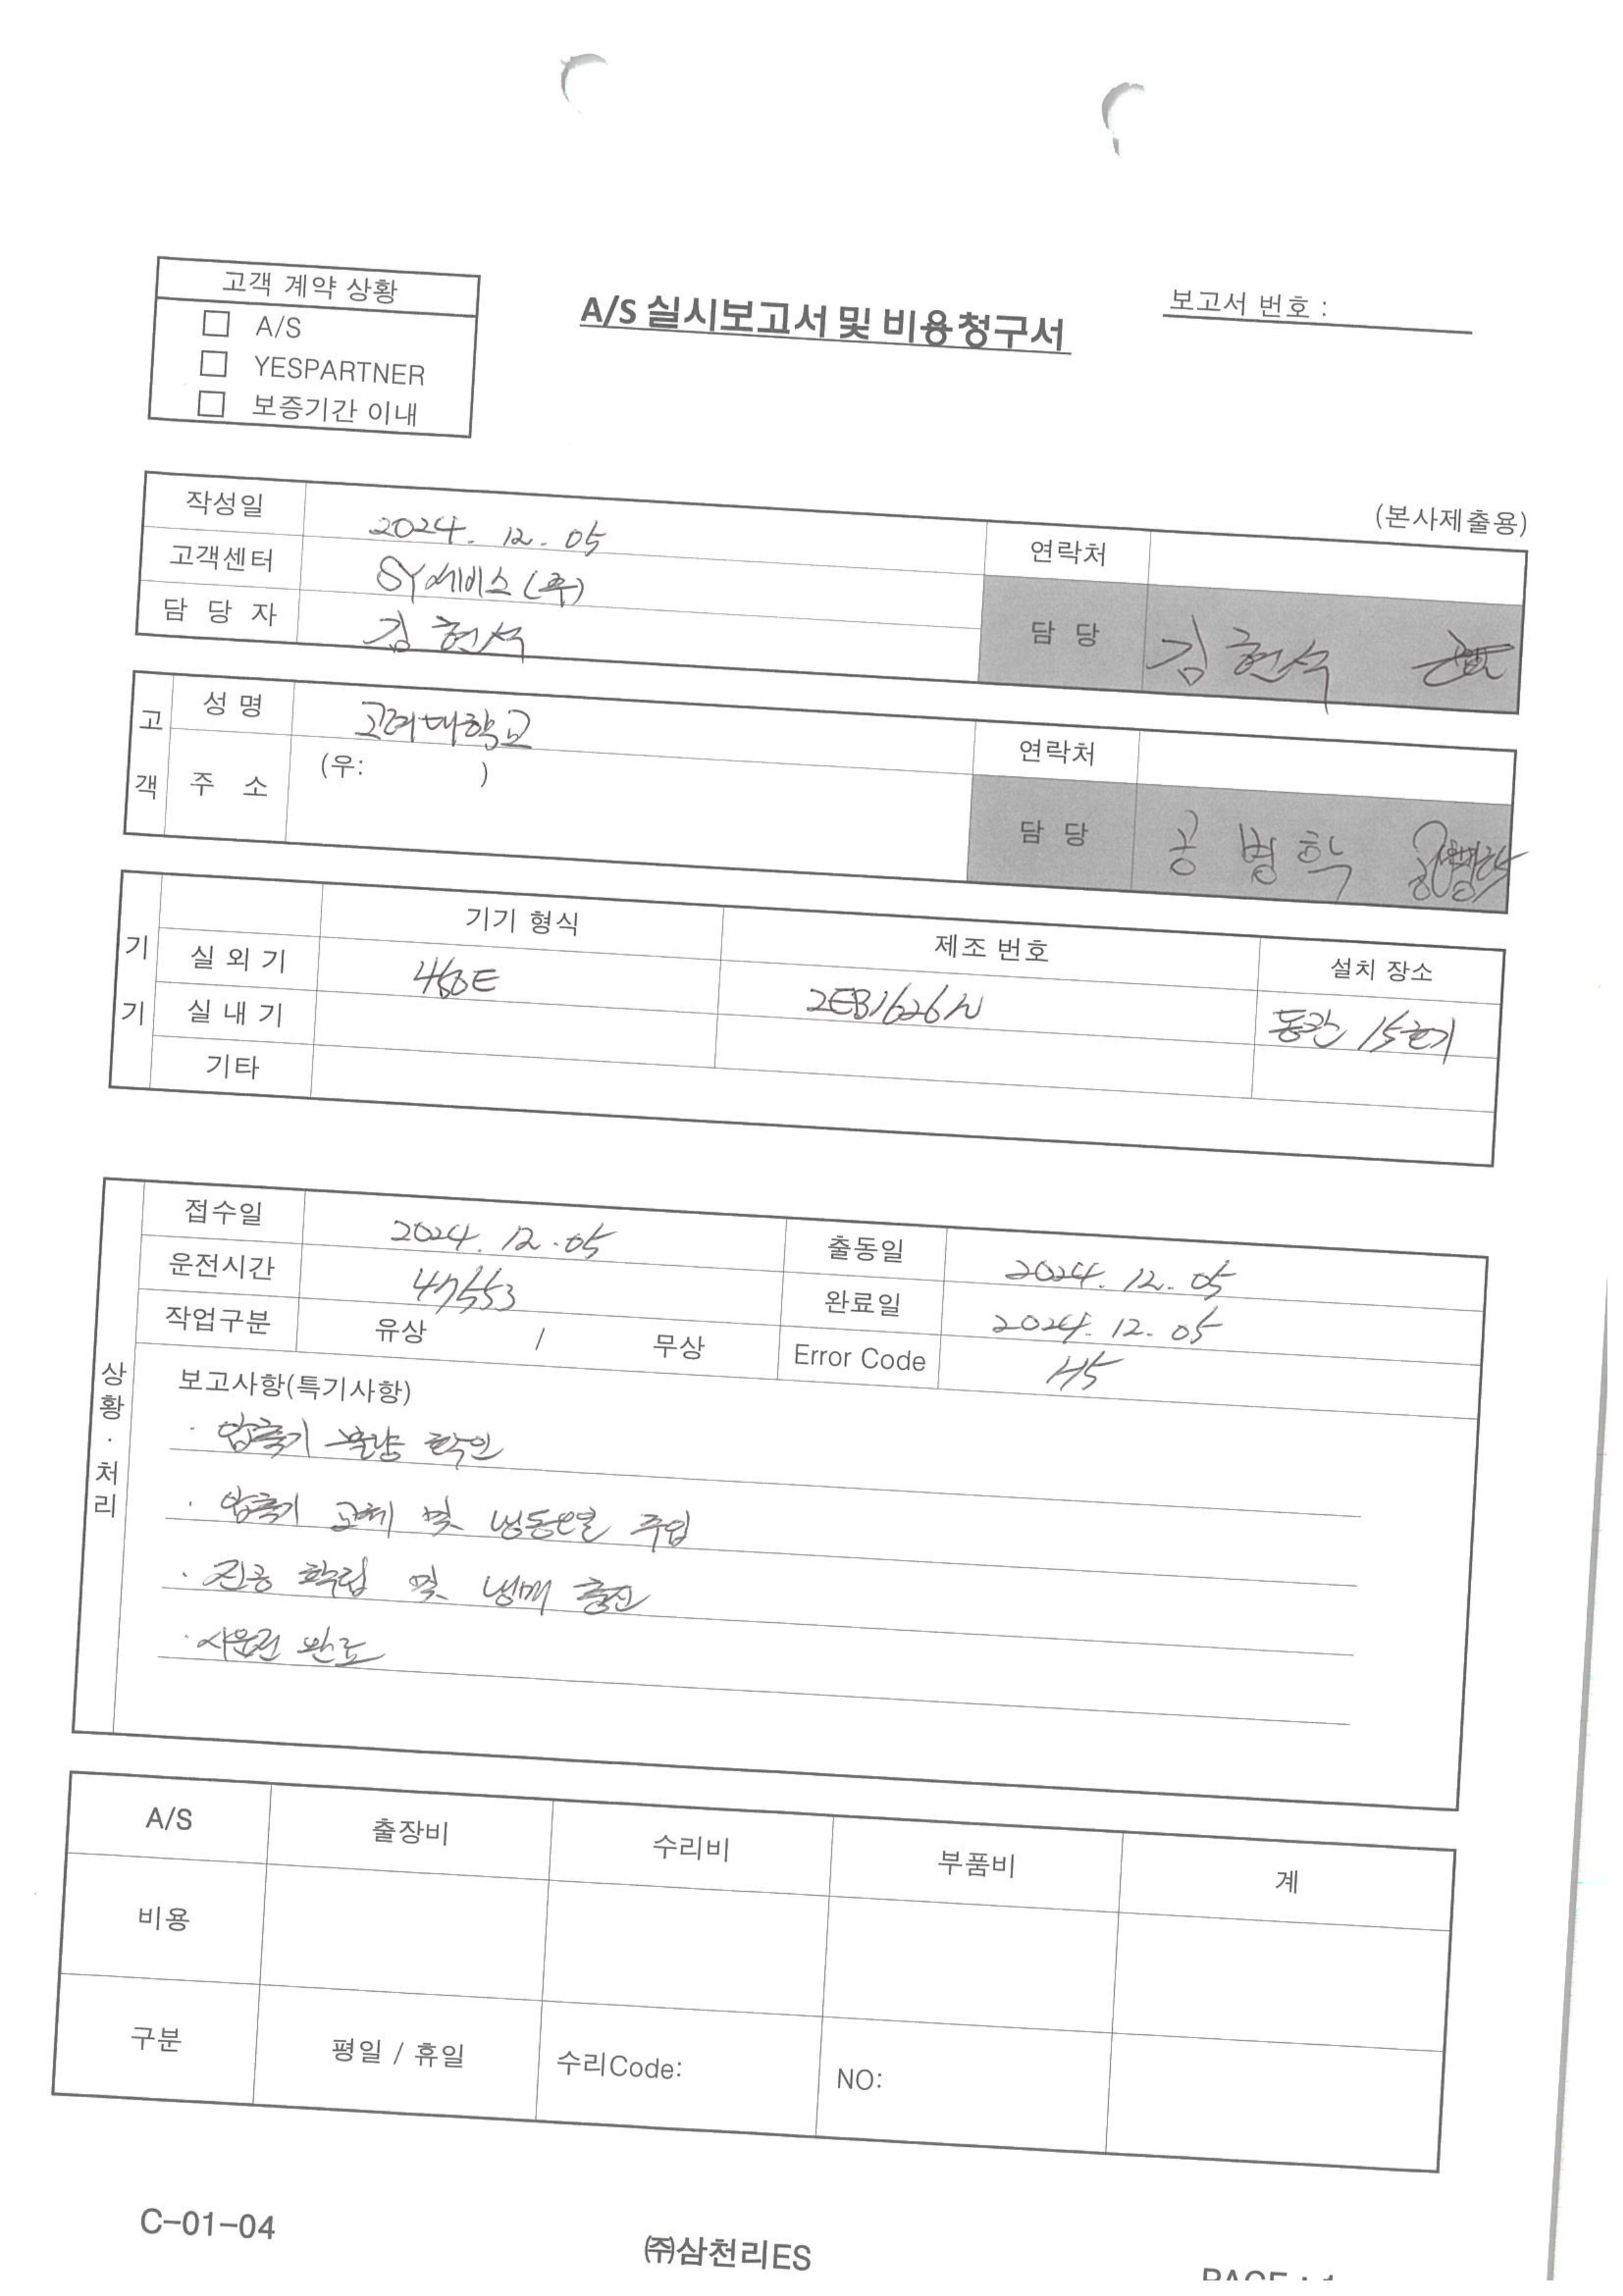 고객 계약 상황
□ A/S
□ YESPARTNER
□ 보증기간 이내
A/S 실시보고서 및 비용청구서
보고서 번호 :
(본사제출용)
작성일 2024. 12. 05 연락처
고객센터 SY에이스(주)
담 당 자 김현석 담 당 김현석
고객 성 명 고려대학교 연락처
주 소 (우: ) 담 당 공병학
기기 기기 형식 제조 번호 설치 장소
실 외 기 2EB1626N 동관 15호기
실 내 기
기타
상황·처리
접수일 2024. 12. 05 출동일 2024. 12. 05
운전시간 47553 완료일 2024. 12. 05
작업구분 유상 / 무상 Error Code H5
보고사항(특기사항)
· 압축기 불량 확인
· 압축기 교체 및 냉동오일 주입
· 진공 확립 및 냉매 충전
· 시운전 완료
A/S 출장비 수리비 부품비 계
비용
구분 평일 / 휴일 수리Code: NO:
C-01-04
㈜삼천리ES
PAGE : 1